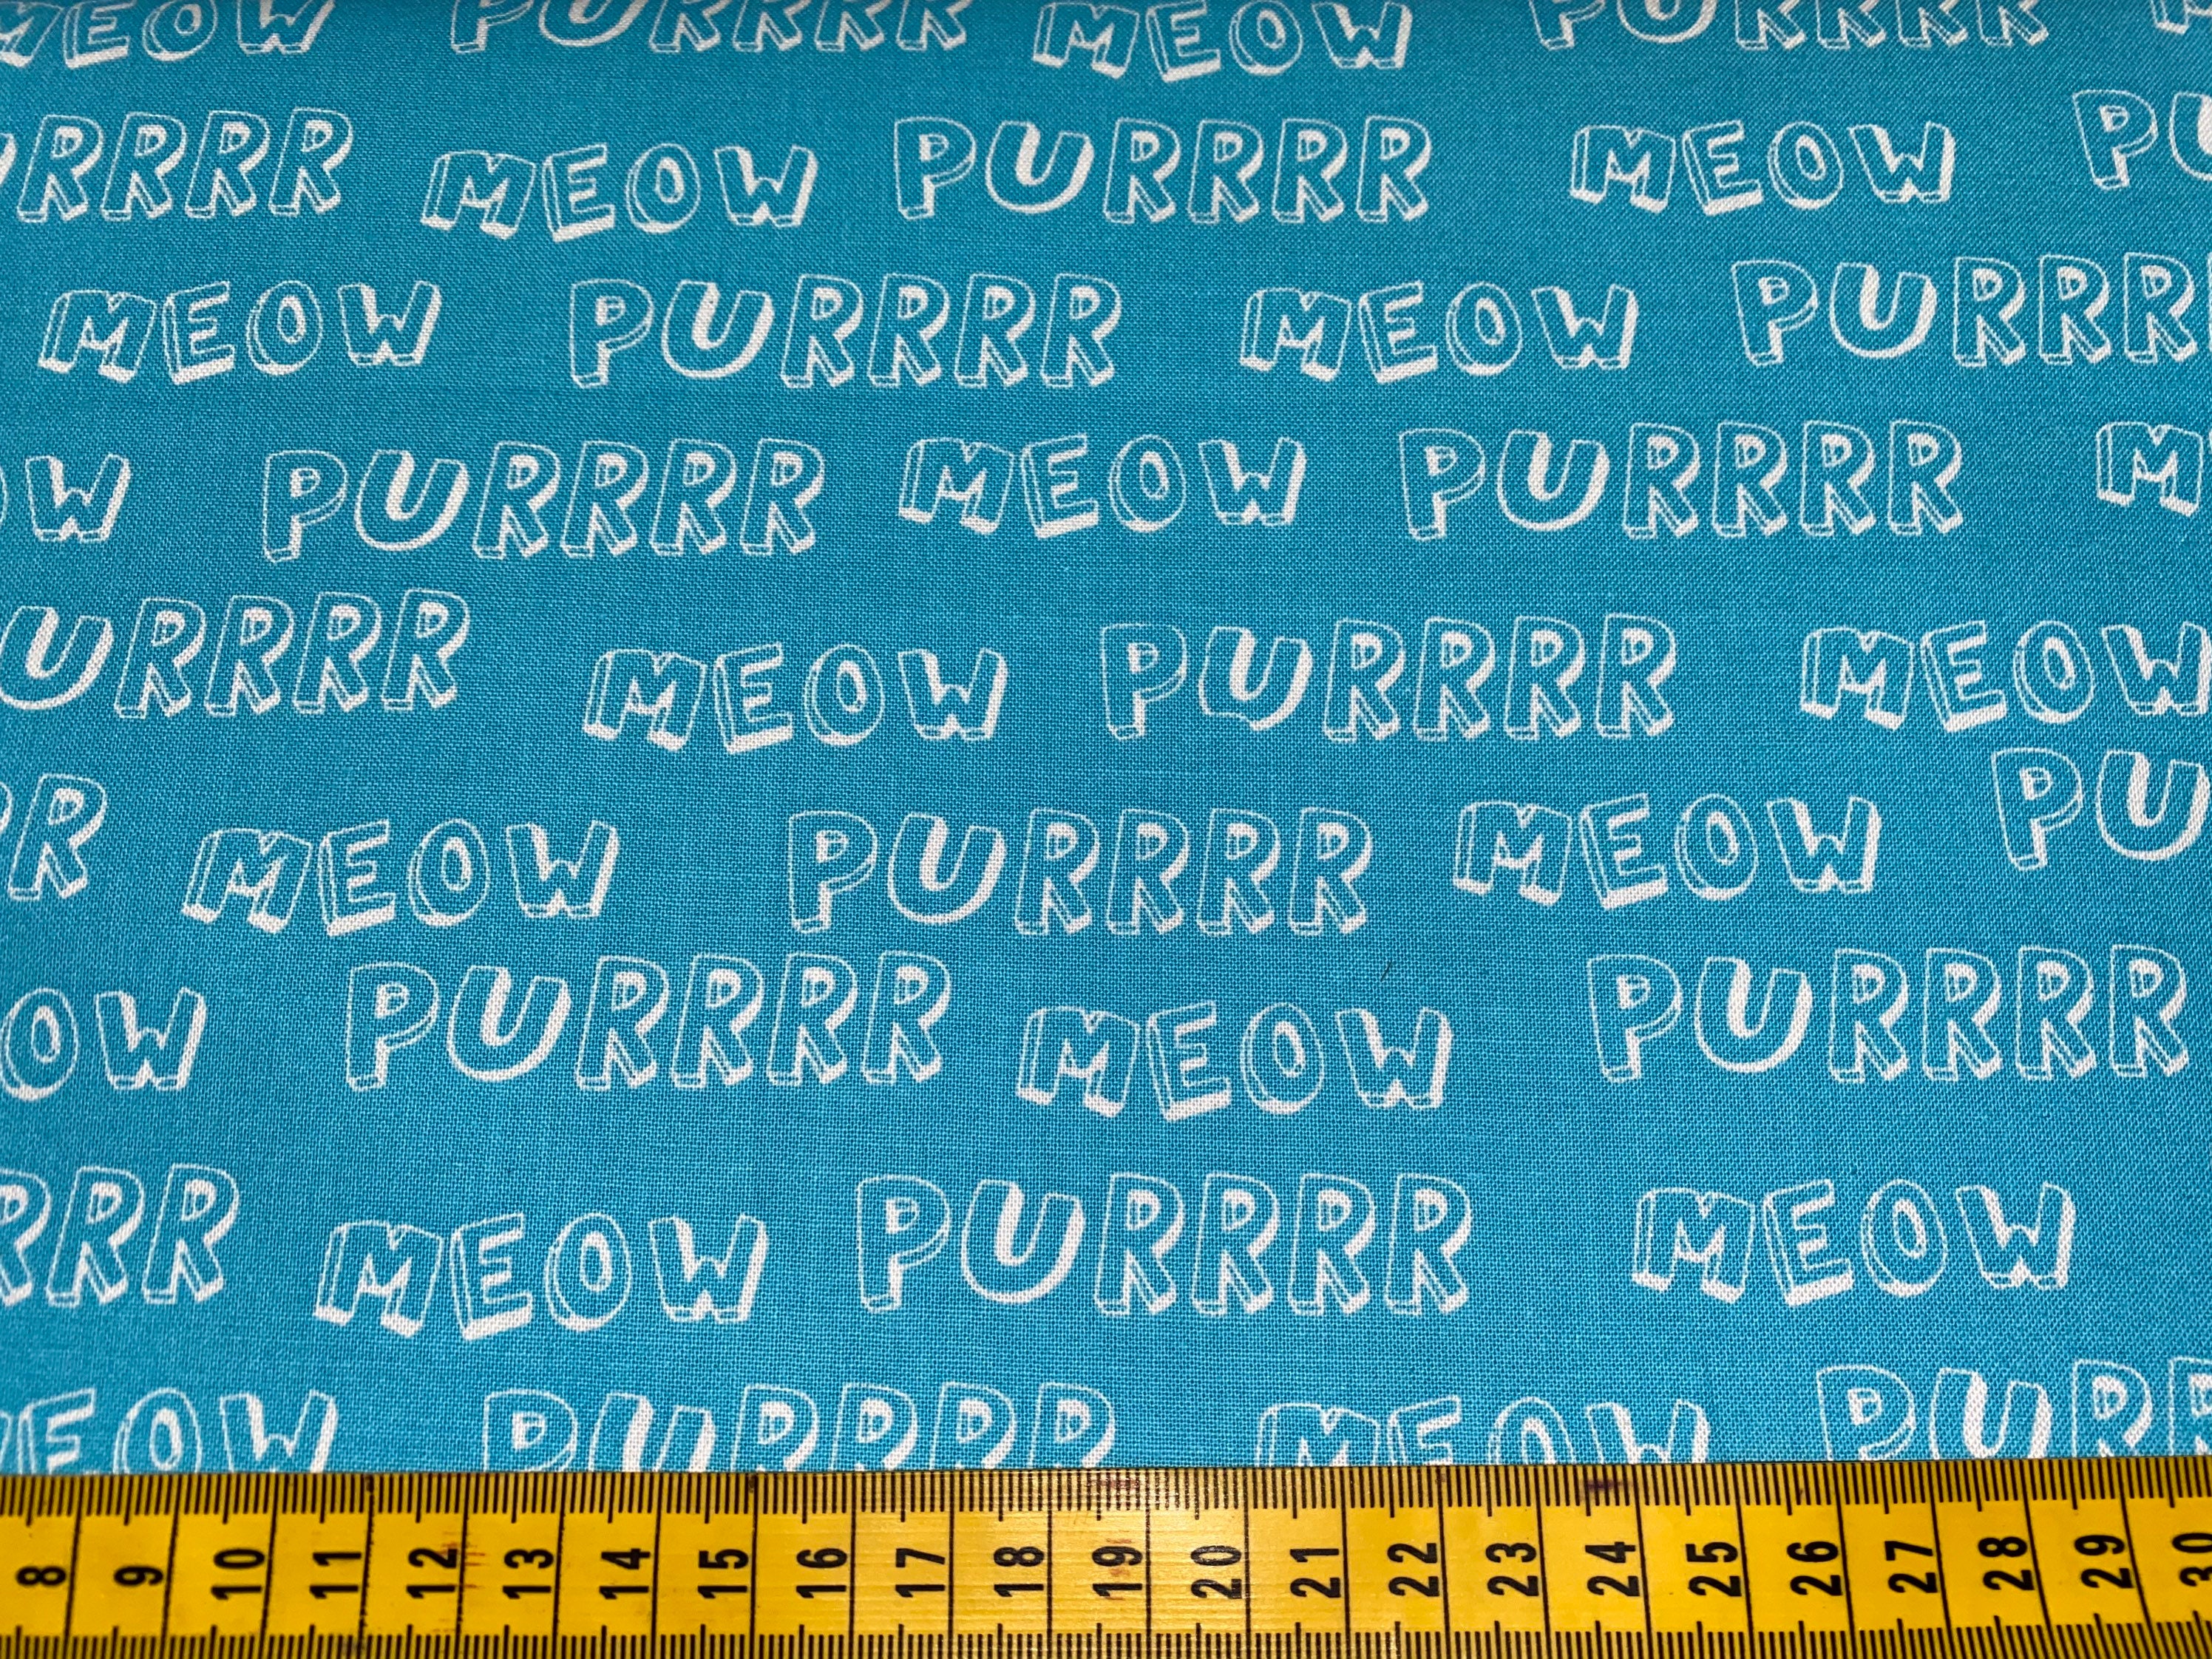 MEOW PURRRR MEOW PURRRR
URRRR MEOW PURRRR MEOW PU
MEOW PURRRR MEOW PURRR
OW PURRRR MEOW PURRRR M
URRRR MEOW PURRRR MEOW
RR MEOW PURRRR MEOW PU
OW PURRRR MEOW PURRRR
RRR MEOW PURRRR MEOW
MEOW PURRRR MEOW PURR
8 9 10 11 12 13 14 15 16 17 18 19 20 21 22 23 24 25 26 27 28 29 30